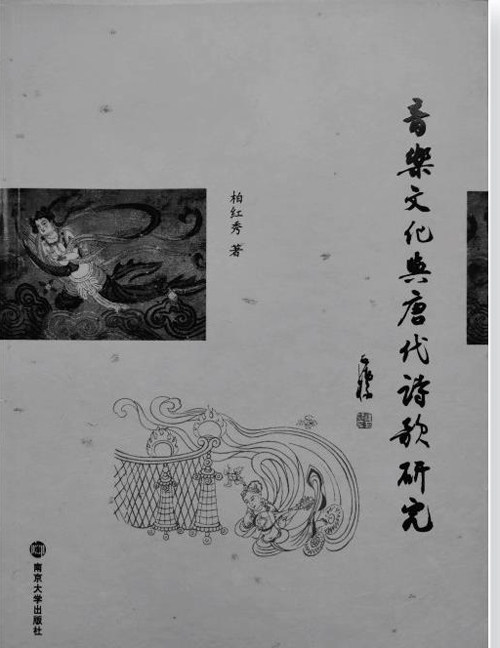 音樂文化與唐代詩歌研究
柏红秀 著
南京大学出版社